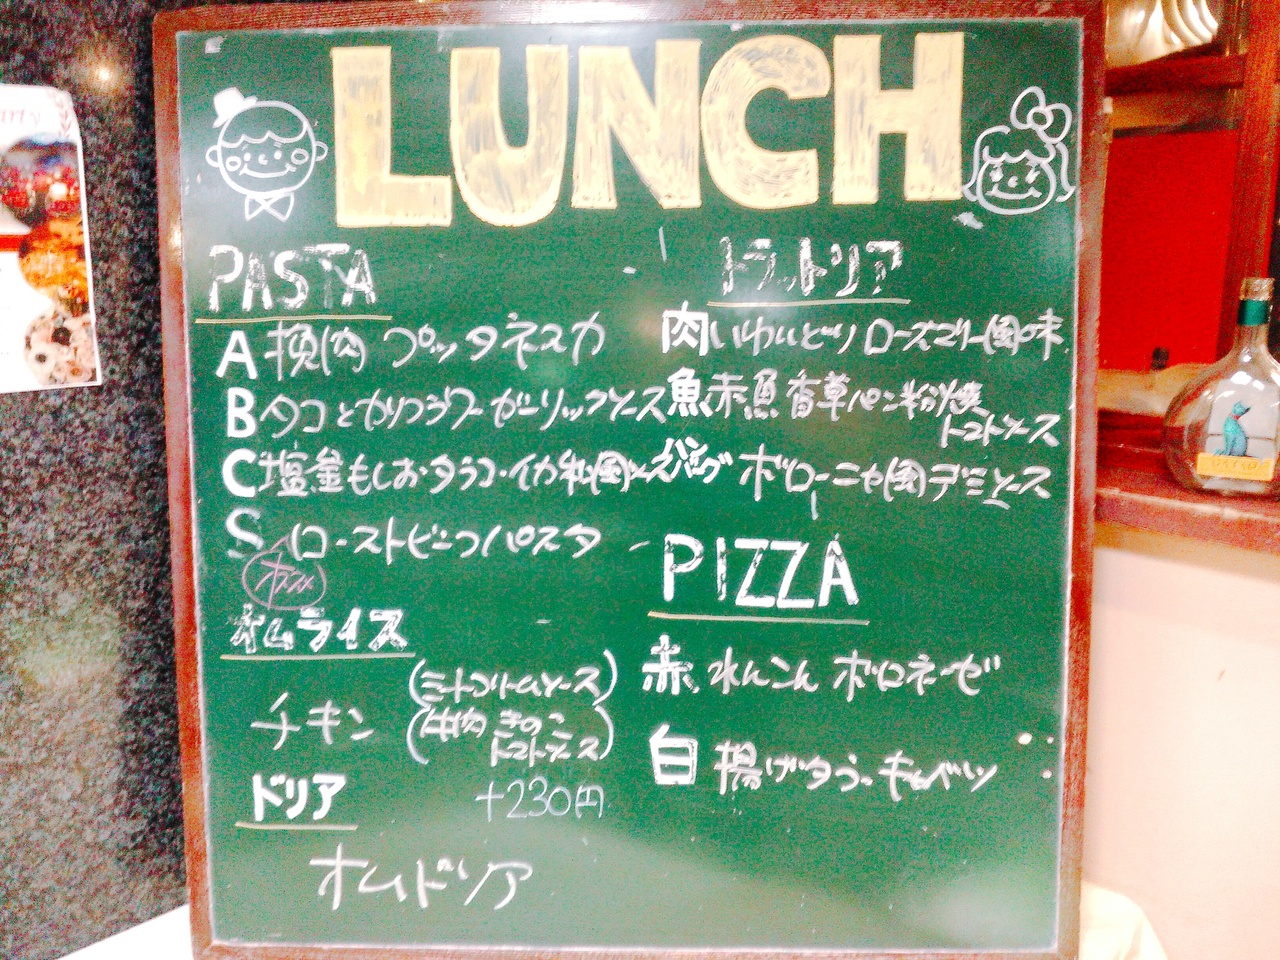 LUNCH
PASTA
A 挽肉 プッタネスカ
B タコとカリフラワー ガーリックソース
C 塩釜もしお タラコ・イカ 和風ソース
S ローストビーフパスタ
オススメ
オムライス
チキン
(ミートクリームソース)
(牛肉 きのこ
トマトソース)
ドリア
+230円
オムドリア
トラットリア
肉 いわいどり ローズマリー風味
魚 赤魚 香草パン粉焼
トマトソース
バーグ ボローニャ風デミソース
PIZZA
赤 れんこん ボロネーゼ
白 揚げタラ・キャベツ